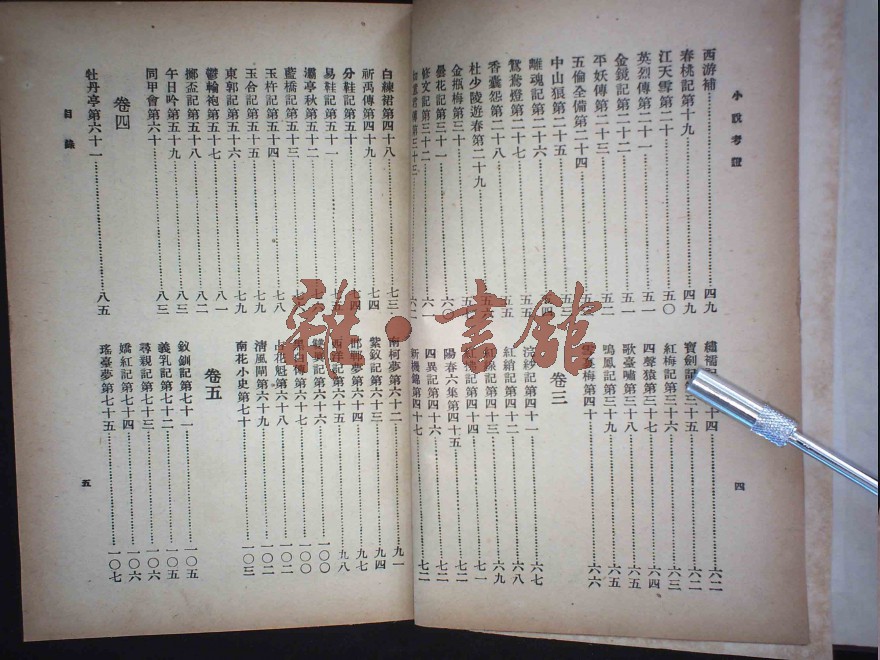 小說考證
西游補 四九
春桃記第十九 四九
江天雪第二十 五〇
英烈傳第二十一 五一
金鏡記第二十二 五一
平妖傳第二十三 五二
五倫全備第二十四
中山狼第二十五
離魂記第二十六 五五
鴛鴦燈第二十七 五五
香囊怨第二十八
杜少陵遊春第二十九
金瓶梅第三十
曇花記第三十一
修文記第三十二 六一
第三十三 六二
繡襦記 十四 六二
寶劍記 三十五 六二
紅梅記第三十六 六三
四聲猿第三十七 六四
歌臺嘯第三十八 六五
鳴鳳記第三十九 六五
梅第四十 六六
卷三
浣紗記第四十一 六七
紅綃記第四十二 六八
第四十三 六九
紅 第四十四 七一
陽春六集第四十五 七二
四異記第四十六 七二
第四十七 七二
四
白練裙第四十八 七三
祈禹傳第四十九 七四
分鞋記第五十
易鞋記第五十一
灞亭秋第五十二
藍橋記第五十三
玉杵記第五十四 七八
玉合記第五十五 七九
東郭記第五十六 七九
鬱輪袍第五十七 八一
擲盃記第五十八 八二
午日吟第五十九 八三
同甲會第六十 八三
卷四
牡丹亭第六十一 八五
南柯夢第六十二 九一
紫釵記第六十三 九四
邯鄲夢第六十四 九七
第六十五 九八
雙 記第六十六 一〇〇
傳第六十七 一〇〇
占花魁第六十八 一〇二
清風閘第六十九 一〇二
南花小史第七十 一〇三
卷五
釵釧記第七十一 一〇五
義乳記第七十二 一〇五
尋親記第七十三 一〇六
嬌紅記第七十四 一〇六
瑤臺夢第七十五 一〇七
目錄
五
雜·書館